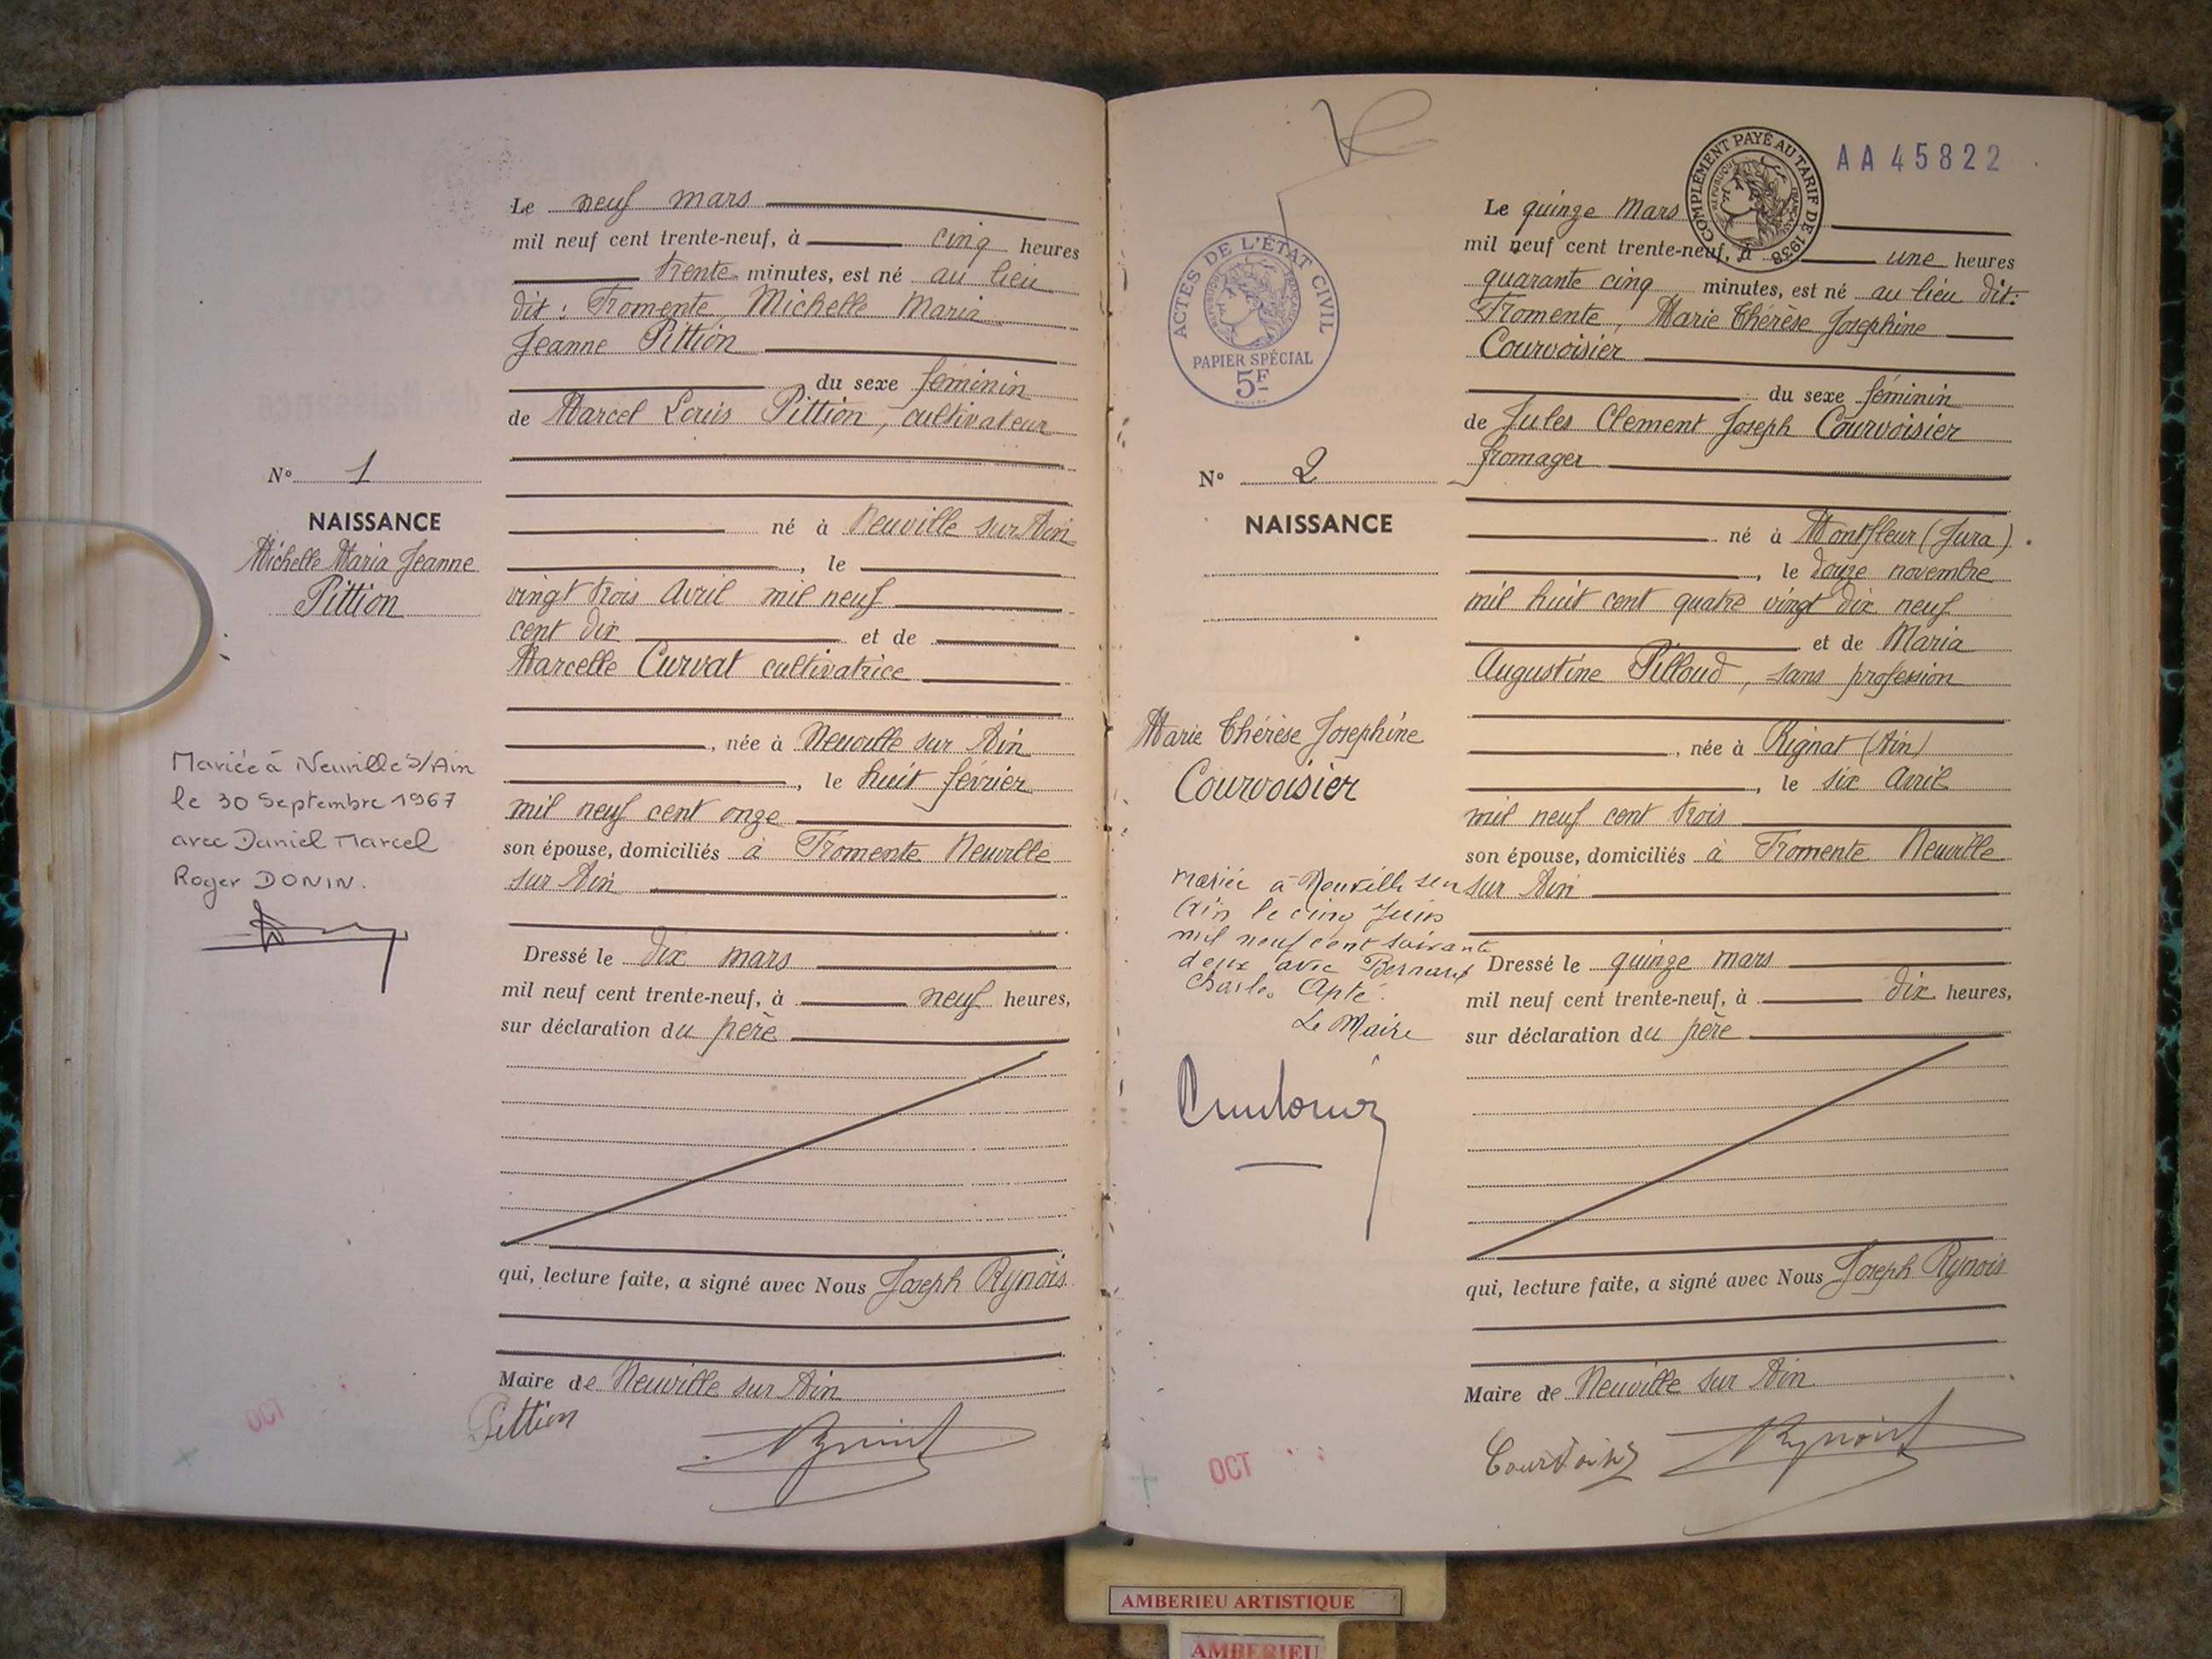 Le neuf mars
mil neuf cent trente-neuf, à cinq heures
trente minutes, est né au lieu
dit : Fromente, Michelle Maria
Jeanne Pittion
du sexe féminin
de Marcel Louis Pittion, cultivateur
né à Neuville sur Ain
, le
vingt trois Avril mil neuf
cent dix et de
Marcelle Curvat cultivatrice
, née à Neuville sur Ain
, le huit février
mil neuf cent onze
son épouse, domiciliés à Fromente Neuville
sur Ain
Dressé le dix mars
mil neuf cent trente-neuf, à neuf heures,
sur déclaration du père
qui, lecture faite, a signé avec Nous Joseph Rynois
Maire de Neuville sur Ain
Pittion
N° 1
NAISSANCE
Michelle Maria Jeanne
Pittion
Mariée à Neuville s/Ain
le 30 Septembre 1967
avec Daniel Marcel
Roger DONIN.
OCT
AA45822
COMPLÉMENT PAYÉ AU TARIF DE 1938
Le quinze Mars
mil neuf cent trente-neuf, à une heures
quarante cinq minutes, est né au lieu dit:
Fromente, Marie Thérèse Josephine
Courvoisier
du sexe féminin
de Jules Clement Joseph Courvoisier
fromager
né à Montfleur (Jura).
, le douze novembre
mil huit cent quatre vingt dix neuf
et de Maria
Augustine Pilloud, sans profession
, née à Rignat (Ain)
, le six Avril
mil neuf cent trois
son épouse, domiciliés à Fromente Neuville
sur Ain
Dressé le quinze mars
mil neuf cent trente-neuf, à dix heures,
sur déclaration du père
qui, lecture faite, a signé avec Nous Joseph Rynois
Maire de Neuville sur Ain
ACTES DE L'ÉTAT CIVIL
RÉPUBLIQUE FRANÇAISE
PAPIER SPÉCIAL
5F
N° 2
NAISSANCE
Marie Thérèse Josephine
Courvoisier
mariée à Neuville sur
Ain le cinq Juin
mil neuf cent soixante
deux avec Bernard
Charles Apté.
Le Maire
OCT
AMBERIEU ARTISTIQUE
AMBERIEU